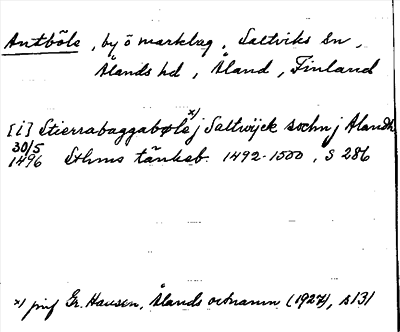 Antböle, by ö markbeg, Saltviks sn,
Ålands hd, Åland, Finland
[i] Stierrabaggabøle x) j Saltwijck sochn j Alandh
30/5
1496 Sthms tänkeb. 1492-1500, S 286
x) jmf Gr. Hausen, Ålands ortnamn (1927), s 131